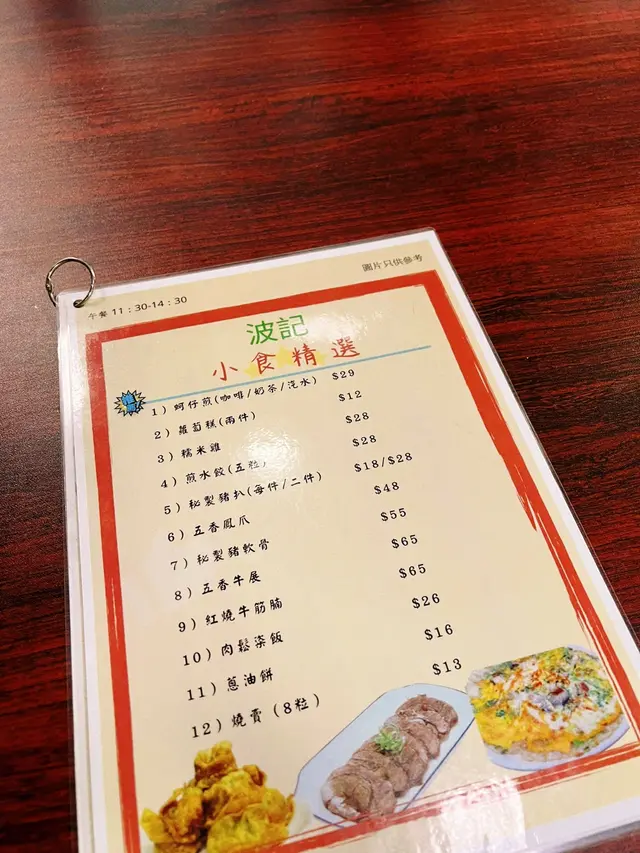 午餐 11：30-14：30
圖片只供參考
波記
小食精選
1）蚵仔煎(咖啡/奶茶/汽水) $29
2）蘿蔔糕(兩件) $12
3）糯米雞 $28
4）煎水餃(五粒) $28
5）秘製豬扒(每件/二件) $18/$28
6）五香鳳爪 $48
7）秘製豬軟骨 $55
8）五香牛展 $65
9）紅燒牛筋腩 $65
10）肉鬆柒飯 $26
11）蔥油餅 $16
12）燒賣（8粒） $13